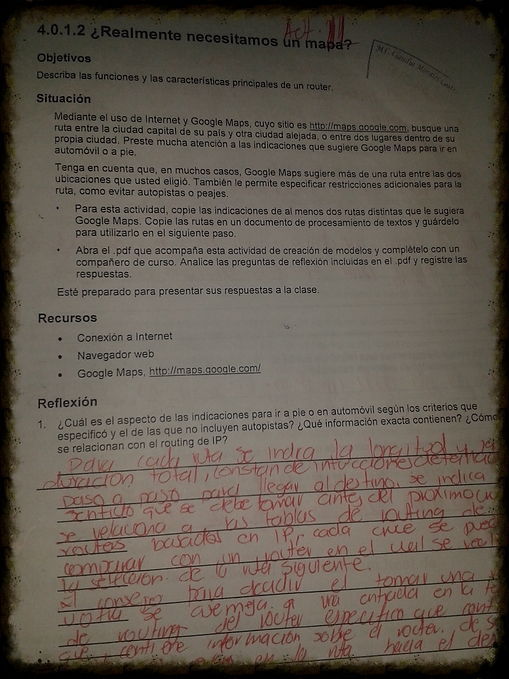 Act. 11
4.0.1.2 ¿Realmente necesitamos un mapa?
Objetivos
Describa las funciones y las características principales de un router.
Situación
Mediante el uso de Internet y Google Maps, cuyo sitio es http://maps.google.com, busque una
ruta entre la ciudad capital de su país y otra ciudad alejada, o entre dos lugares dentro de su
propia ciudad. Preste mucha atención a las indicaciones que sugiere Google Maps para ir en
automóvil o a pie.
Tenga en cuenta que, en muchos casos, Google Maps sugiere más de una ruta entre las dos
ubicaciones que usted eligió. También le permite especificar restricciones adicionales para la
ruta, como evitar autopistas o peajes.
• Para esta actividad, copie las indicaciones de al menos dos rutas distintas que le sugiera
Google Maps. Copie las rutas en un documento de procesamiento de textos y guárdelo
para utilizarlo en el siguiente paso.
• Abra el .pdf que acompaña esta actividad de creación de modelos y complételo con un
compañero de curso. Analice las preguntas de reflexión incluidas en el .pdf y registre las
respuestas.
Esté preparado para presentar sus respuestas a la clase.
Recursos
• Conexión a Internet
• Navegador web
• Google Maps, http://maps.google.com/
Reflexión
1. ¿Cuál es el aspecto de las indicaciones para ir a pie o en automóvil según los criterios que
especificó y el de las que no incluyen autopistas? ¿Qué información exacta contienen? ¿Cómo
se relacionan con el routing de IP?
Para cada ruta se indica la longitud y
duración total, constan de
paso a paso para llegar al destino, se indica
sentido que se debe tomar antes del proximo
se relaciona a las tablas de routing de
routers basados en IP, cada cruce se
comparar con un router en el cual se
la selección de la ruta siguiente.
El consejo para decidir el tomar una
se asemeja a una entrada en la
de routing del router especifico que
que contiene información sobre el router de
en la ruta hacia el